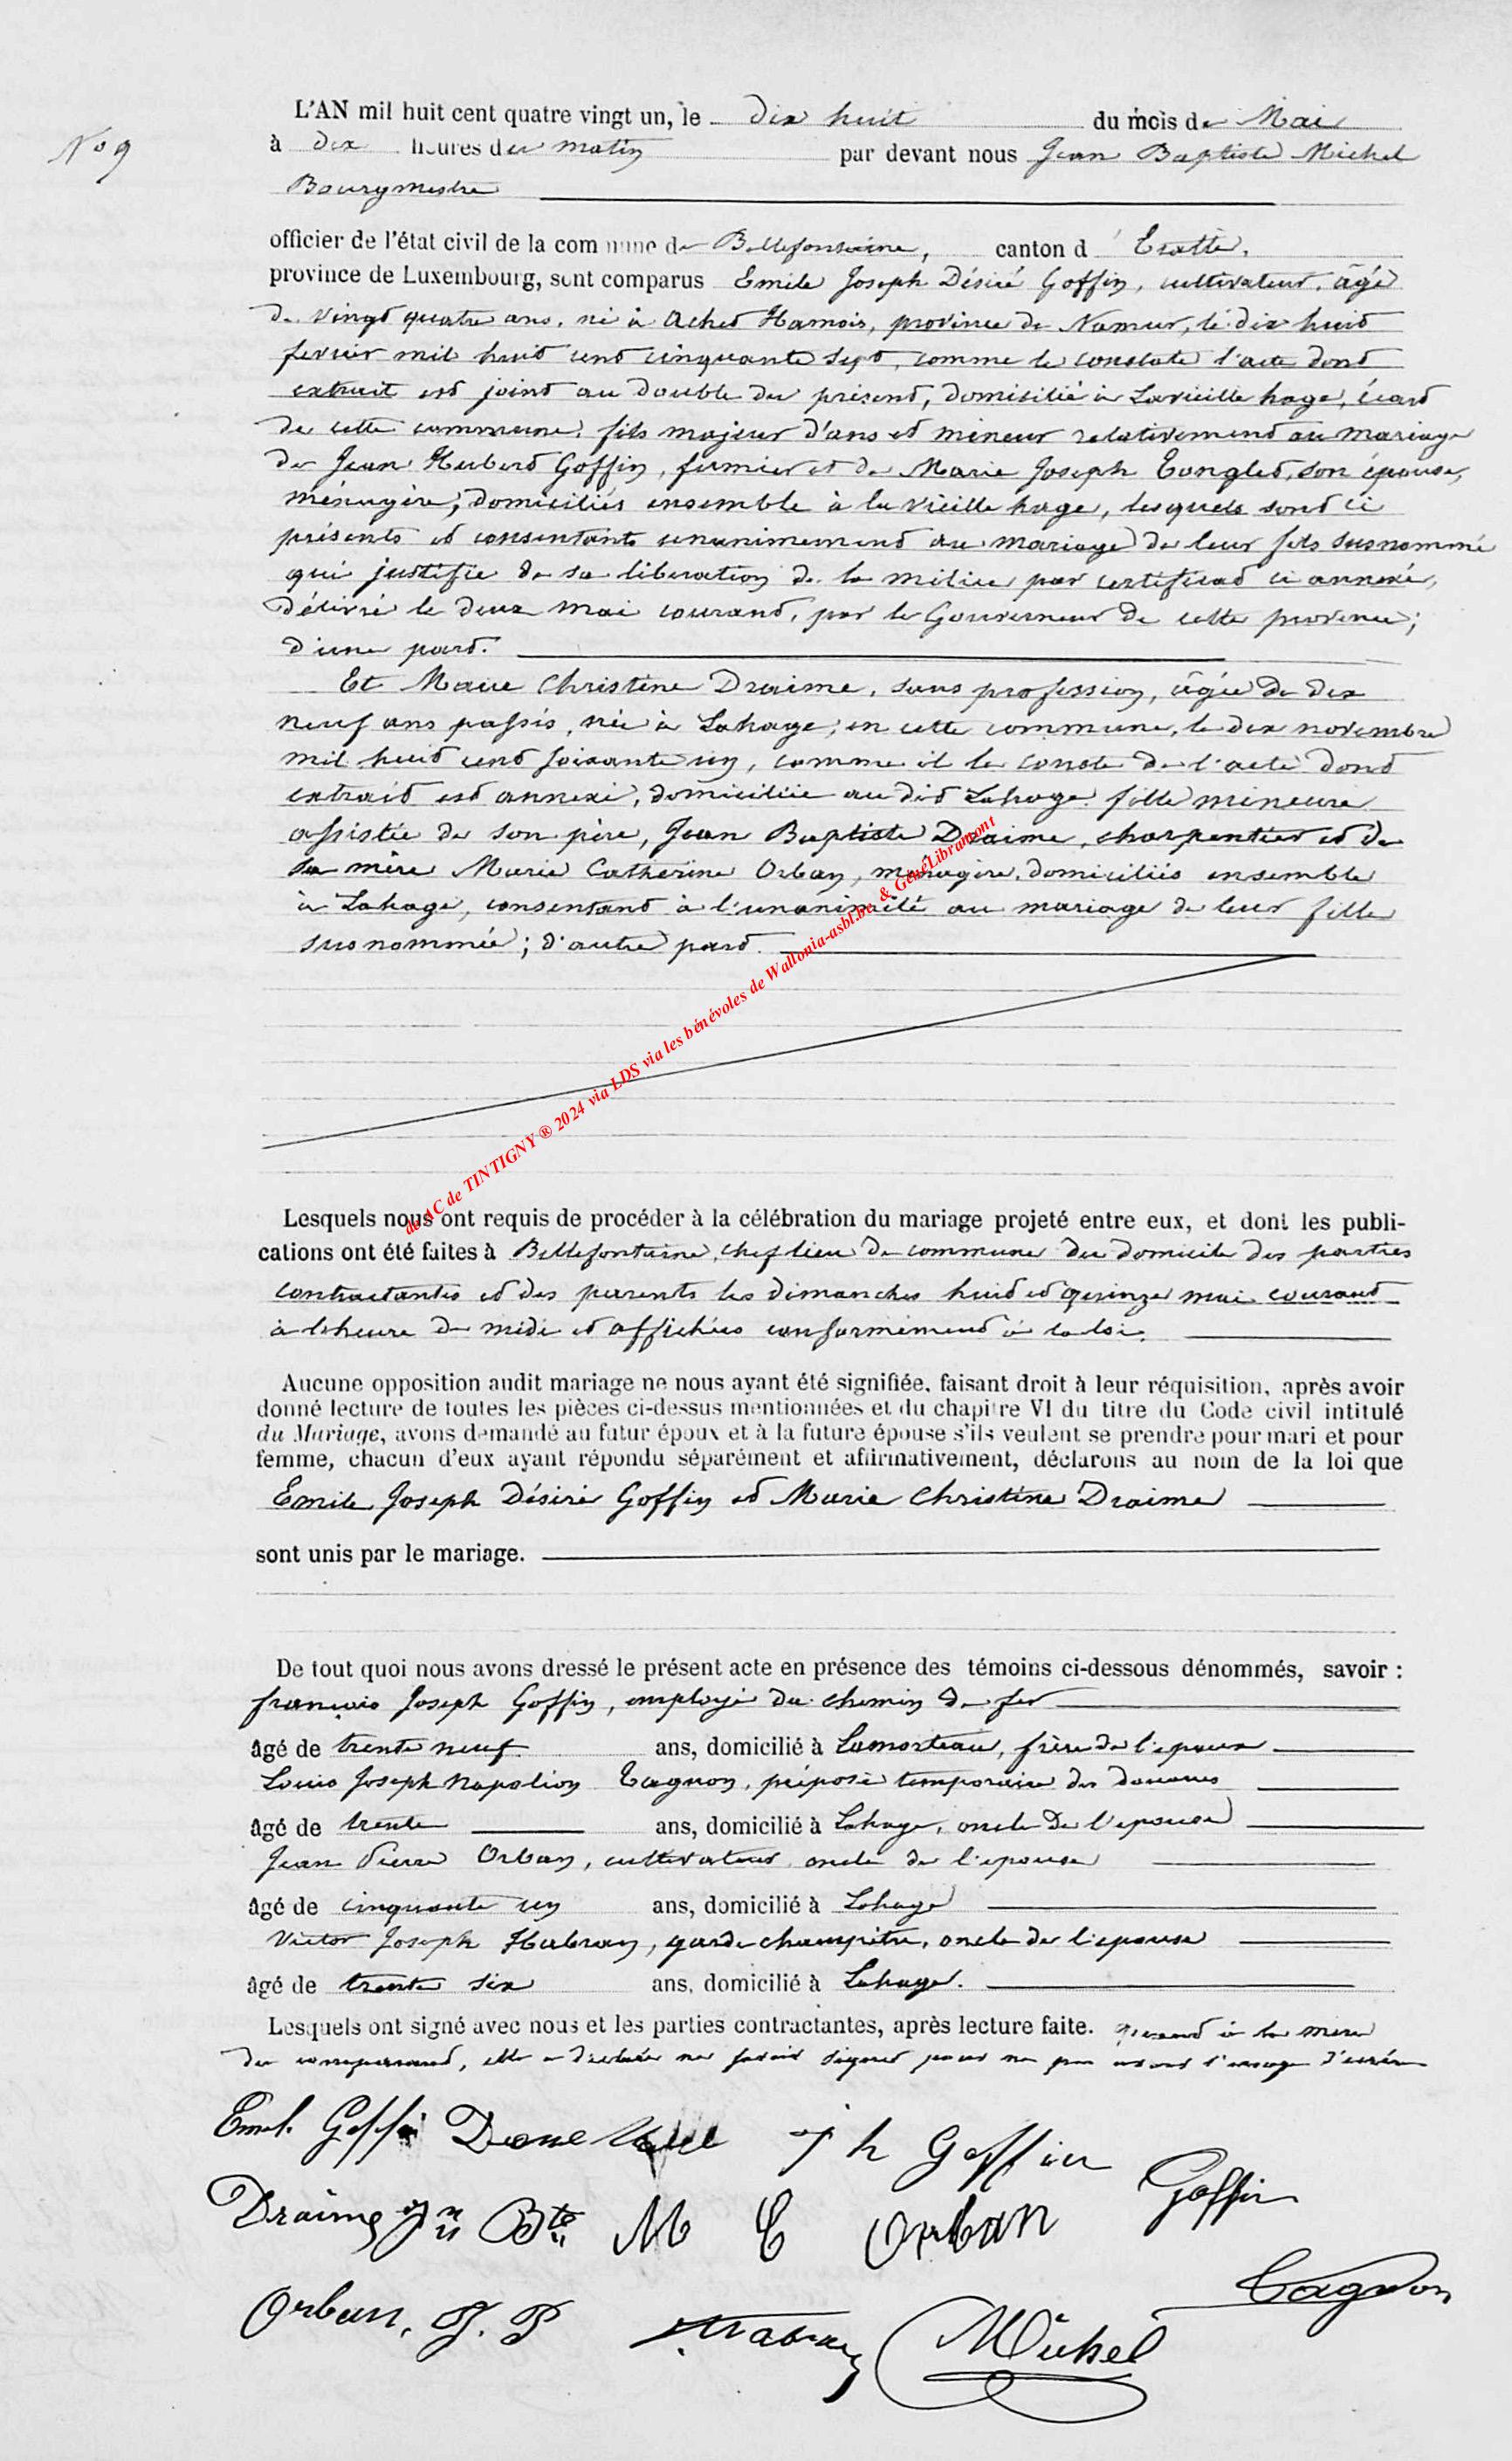 L'AN mil huit cent quatre vingt un, le dix huit du mois de Mai
N° 9
à dix heures du matin par devant nous Jean Baptiste Michel
Bourgmestre
officier de l'état civil de la commune de Bellefontaine, canton d'Etalle,
province de Luxembourg, sont comparus Emile Joseph Désiré Goffin, cultivateur, âgé
de vingt quatre ans, né à Achet Hamois, province de Namur, le dix huit
fevrier mil huit cent cinquante sept, comme le constate l'acte dont
extrait est joint au double du présent, domicilié à Lavieille hage, écart
de cette commune, fils majeur d'ans et mineur relativement au mariage
de Jean Hubert Goffin, fermier et de Marie Joseph Tonglet, son épouse,
ménagère, domiciliés ensemble à la vieille hage, lesquels sont ci
présents et consentants unanimement au mariage de leur fils susnommé
qui justifie de sa libération de la milice par certificat ci annexé,
délivré le deux mai courant, par le Gouverneur de cette province;
d'une part.
Et Marie Christine Draime, sans profession, âgée de dix
neuf ans passés, née à Lahage, en cette commune, le dix novembre
mil huit cent soixante un, comme il le conste de l'acte dont
extrait est annexé, domiciliée au dit Lahage, fille mineure
assistée de son père, Jean Baptiste Draime, charpentier et de
sa mère Marie Catherine Orban, ménagère, domiciliés ensemble
à Lahage, consentant à l'unanimité au mariage de leur fille
susnommée; d'autre part.
de AC de TINTIGNY ® 2024 via LDS via les bénévoles de Wallonia-asbl.be & GénéLibramont
Lesquels nous ont requis de procéder à la célébration du mariage projeté entre eux, et dont les publi-
cations ont été faites à Bellefontaine, chef lieu de commune du domicile des parties
contractantes et des parents les dimanches huit et quinze mai courant
à l'heure de midi et affichées conformément à la loi.
Aucune opposition audit mariage ne nous ayant été signifiée, faisant droit à leur réquisition, après avoir
donné lecture de toutes les pièces ci-dessus mentionnées et du chapitre VI du titre du Code civil intitulé
du Mariage, avons demandé au futur époux et à la future épouse s'ils veulent se prendre pour mari et pour
femme, chacun d'eux ayant répondu séparément et affirmativement, déclarons au nom de la loi que
Emile Joseph Désiré Goffin et Marie Christine Draime
sont unis par le mariage.
De tout quoi nous avons dressé le présent acte en présence des témoins ci-dessous dénommés, savoir :
françois Joseph Goffin, employé du chemin de fer
âgé de trente neuf ans, domicilié à Lamorteau, frère de l'epoux
Louis Joseph Napoléon Tagnon, préposé temporaire des douanes
âgé de trente ans, domicilié à Lahage, oncle de l'epouse
Jean Pierre Orban, cultivateur, oncle de l'epouse
âgé de cinquante un ans, domicilié à Lahage
Victor Joseph Habran, garde champêtre, oncle de l'epouse
âgé de trente six ans, domicilié à Lahage.
Lesquels ont signé avec nous et les parties contractantes, après lecture faite. quant à la mère
du comparant, elle a déclaré ne savoir signer pour ne pas avoir l'usage d'écrire
Emil. Goffin J h Goffin
Goffin
Draime Jn Bte M C Orban
Tagnon
Orban, J. P Habran Michel